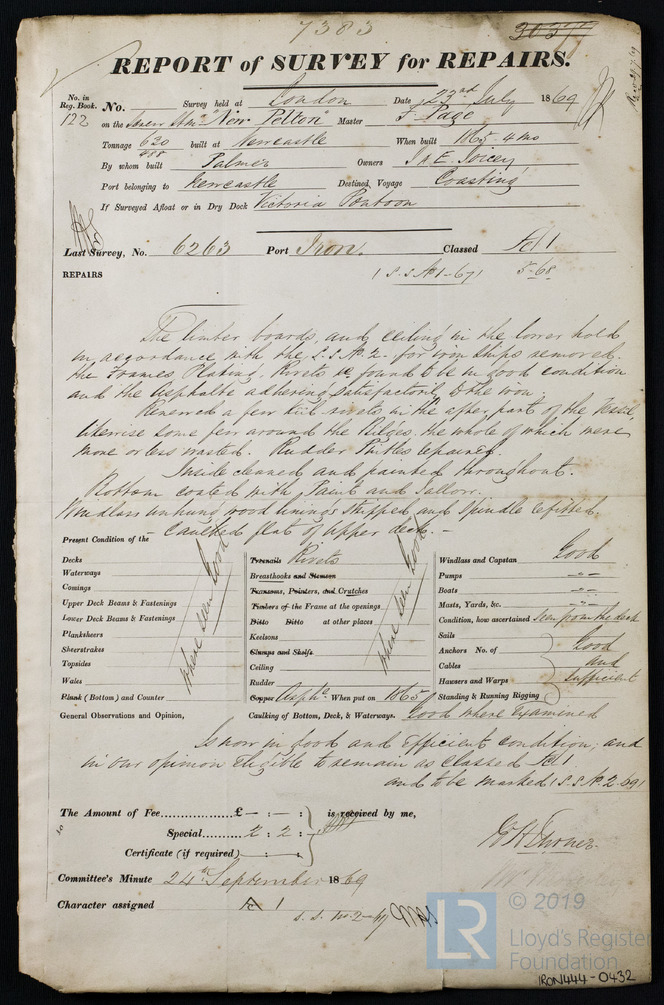 7383
REPORT of SURVEY for REPAIRS.
No. in Reg. Book. No. Survey held at London Date 23rd July 1869
122 on the Screw Str "New Pelton" Master Page
Tonnage 630 built at Newcastle When built 1865 4 mo
By whom built Palmer Owners Joicey
Port belonging to Newcastle Destined Voyage Coasting
If Surveyed Afloat or in Dry Dock Victoria Pontoon
Last Survey, No. 6263 Port Iron. Classed A 1
REPAIRS S.S No1-67 5-68
The limber boards, and ceiling in the lower hold
in accordance with the S.S No. 2 - for iron ships removed.
the Frames, Plating, Rivets &c found to be in good condition
and the Asphalte adhering satisfactorily to the iron.
Renewed a few keel rivets in the after part of the Vessel,
likewise some few around the Bilges, the whole of which were
more or less wasted. Rudder Pintles repaired.
Inside cleaned and painted throughout.
Bottom coated with Paint and Tallow.
Windlass unhung wood linings stripped and Spindle refitted.
- Caulked flat of upper deck. -
Present Condition of the
Decks
Waterways
Comings
Upper Deck Beams & Fastenings
Lower Deck Beams & Fastenings
Planksheers
Sheerstrakes
Topsides
Wales
Plank (Bottom) and Counter
where seen Good
Treenails Rivets
Breasthooks and Stemson
Transoms, Pointers, and Crutches
Timbers of the Frame at the openings
Ditto Ditto at other places
Keelsons
Clamps and Shelfs
Ceiling
Rudder
Copper Asphe. When put on 1865
where seen Good
Windlass and Capstan Good
Pumps - " -
Boats - " -
Masts, Yards, &c. - " -
Condition, how ascertained seen from the deck
Sails
Anchors No. of Good
Cables and
Hawsers and Warps Sufficient
Standing & Running Rigging
General Observations and Opinion, Caulking of Bottom, Deck, & Waterways. Good where Examined
Is now in good and Efficient condition; and
in our opinion Eligible to remain as Classed A 1
and to be marked S.S. No. 2-69
The Amount of Fee £ - : - : is received by me,
Special 2 : 2 : -
Certificate (if required) : :
Committee's Minute 24th September 1869
Character assigned A 1
S.S. No. 2-69
© 2019
LR Lloyd's Register
Foundation
IRON444-0432